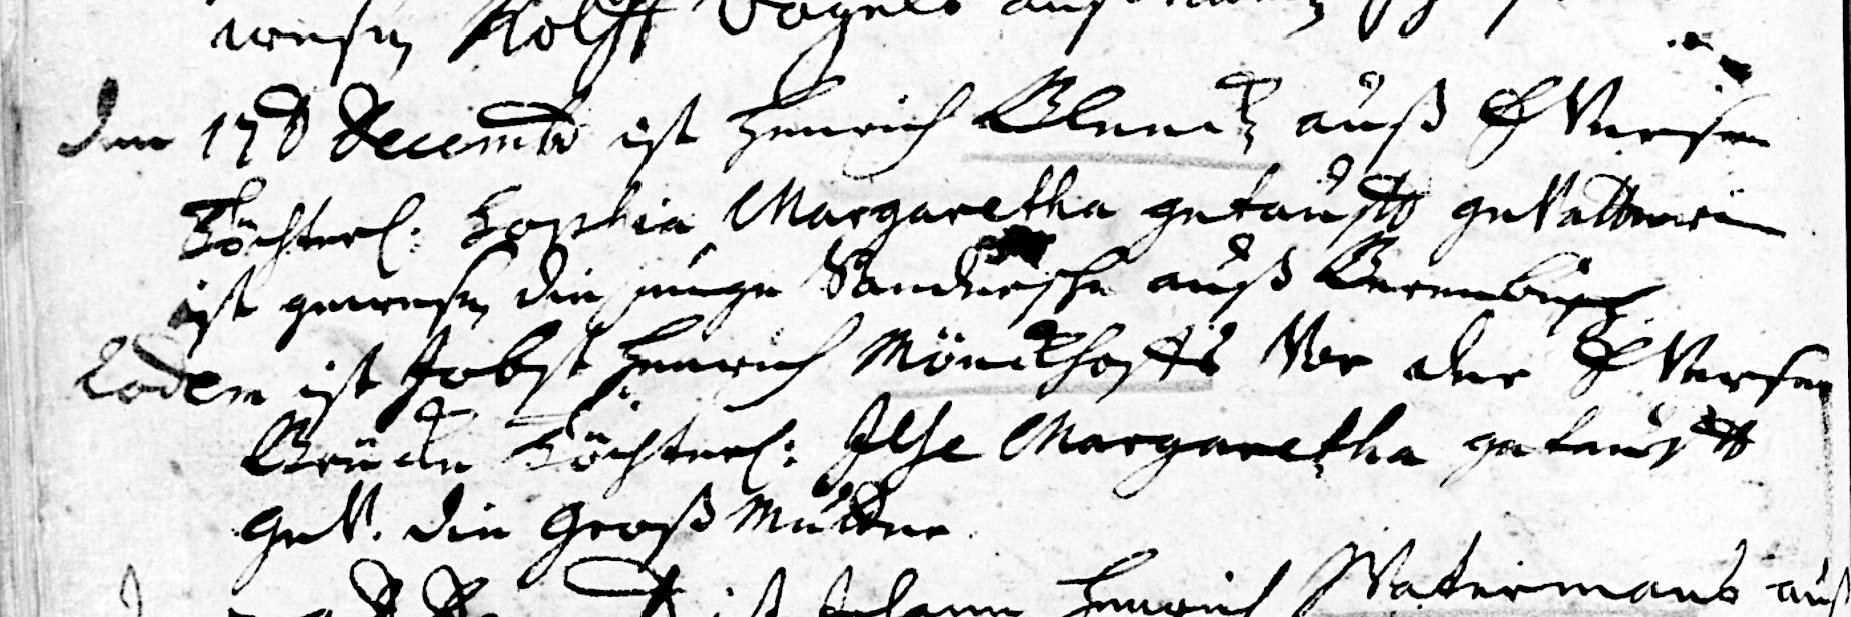 wesen Rolff Vogels auß
den 17 d Decembr ist Henrich Blencke auß Eversen
Töchterl: Sophia Margaretha getaufft gevatterin
ist gewesen die junge Sandersche auß Berenbusch
Eodem ist Jobst Henrich Mönckhoffs Vor der Everser
Brücke Töchterl: Ilse Margaretha getaufft
gev. die Groß Mutter.
ist Johann Henrich Watermans auß